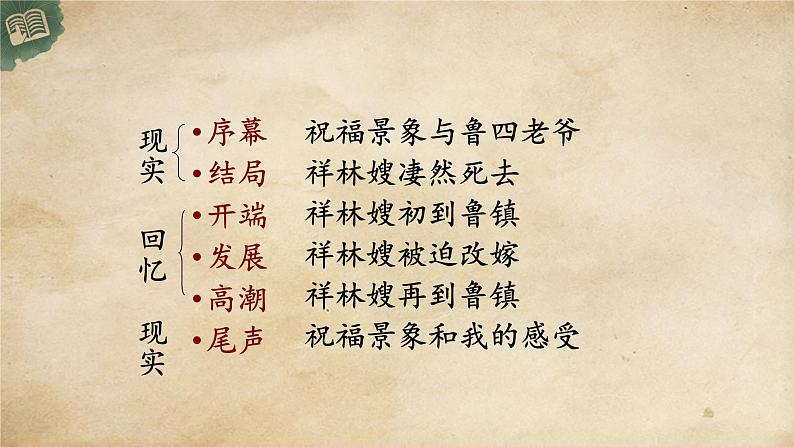 现实
•序幕 祝福景象与鲁四老爷
•结局 祥林嫂凄然死去
回忆
•开端 祥林嫂初到鲁镇
•发展 祥林嫂被迫改嫁
•高潮 祥林嫂再到鲁镇
现实
•尾声 祝福景象和我的感受